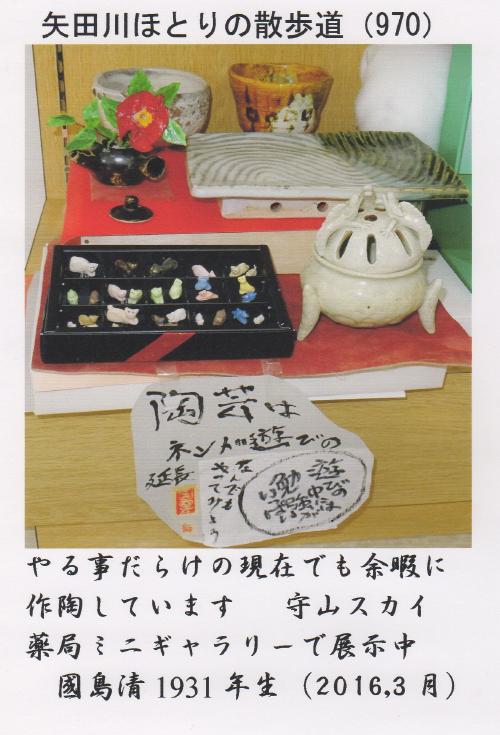 矢田川ほとりの散歩道(970)
陶芸は
ネンド遊びの
延長
なんでも
やってみよう
遊びの
中には
勉強が
いっぱい
やる事だらけの現在でも余暇に
作陶しています 守山スカイ
薬局ミニギャラリーで展示中
國島清1931年生(2016,3月)